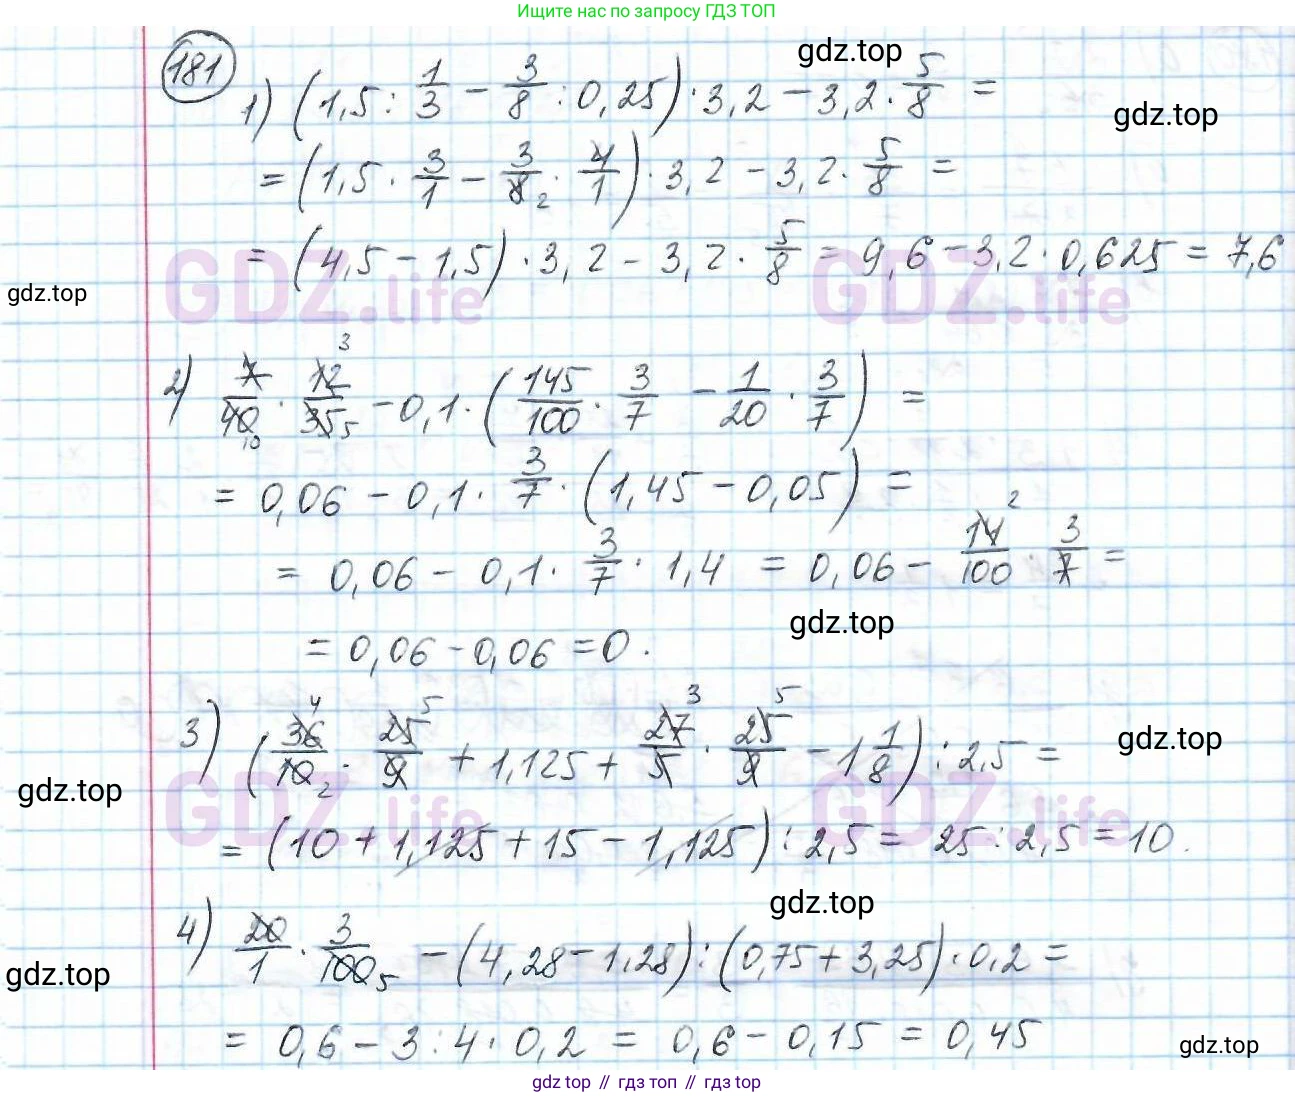 Ищите нас по запросу ГДЗ ТОП
gdz.top
181
1) (1,5 : 1/3 − 3/8 : 0,25) · 3,2 − 3,2 · 5/8 =
gdz.top
= (1,5 · 3/1 − 3/8 2 · 4/1) · 3,2 − 3,2 · 5/8 =
= (4,5 − 1,5) · 3,2 − 3,2 · 5/8 = 9,6 − 3,2 · 0,625 = 7,6
GDZ.life GDZ.life
gdz.top
2) 7/40 10 · 12 3/35 5 − 0,1 · (145/100 · 3/7 − 1/20 · 3/7) =
= 0,06 − 0,1 · 3/7 · (1,45 − 0,05) =
= 0,06 − 0,1 · 3/7 · 1,4 = 0,06 − 14 2/100 · 3/7 =
gdz.top
= 0,06 − 0,06 = 0.
3) (36 4/10 2 · 25 5/9 + 1,125 + 27 3/5 · 25 5/9 − 1 1/8) : 2,5 =
gdz.top
gdz.top
GDZ.life GDZ.life
= (10 + 1,125 + 15 − 1,125) : 2,5 = 25 : 2,5 = 10.
gdz.top
4) 20/1 · 3/100 5 − (4,28 − 1,28) : (0,75 + 3,25) · 0,2 =
gdz.top
= 0,6 − 3 : 4 · 0,2 = 0,6 − 0,15 = 0,45
gdz.top
gdz top // гдз топ // гдз top